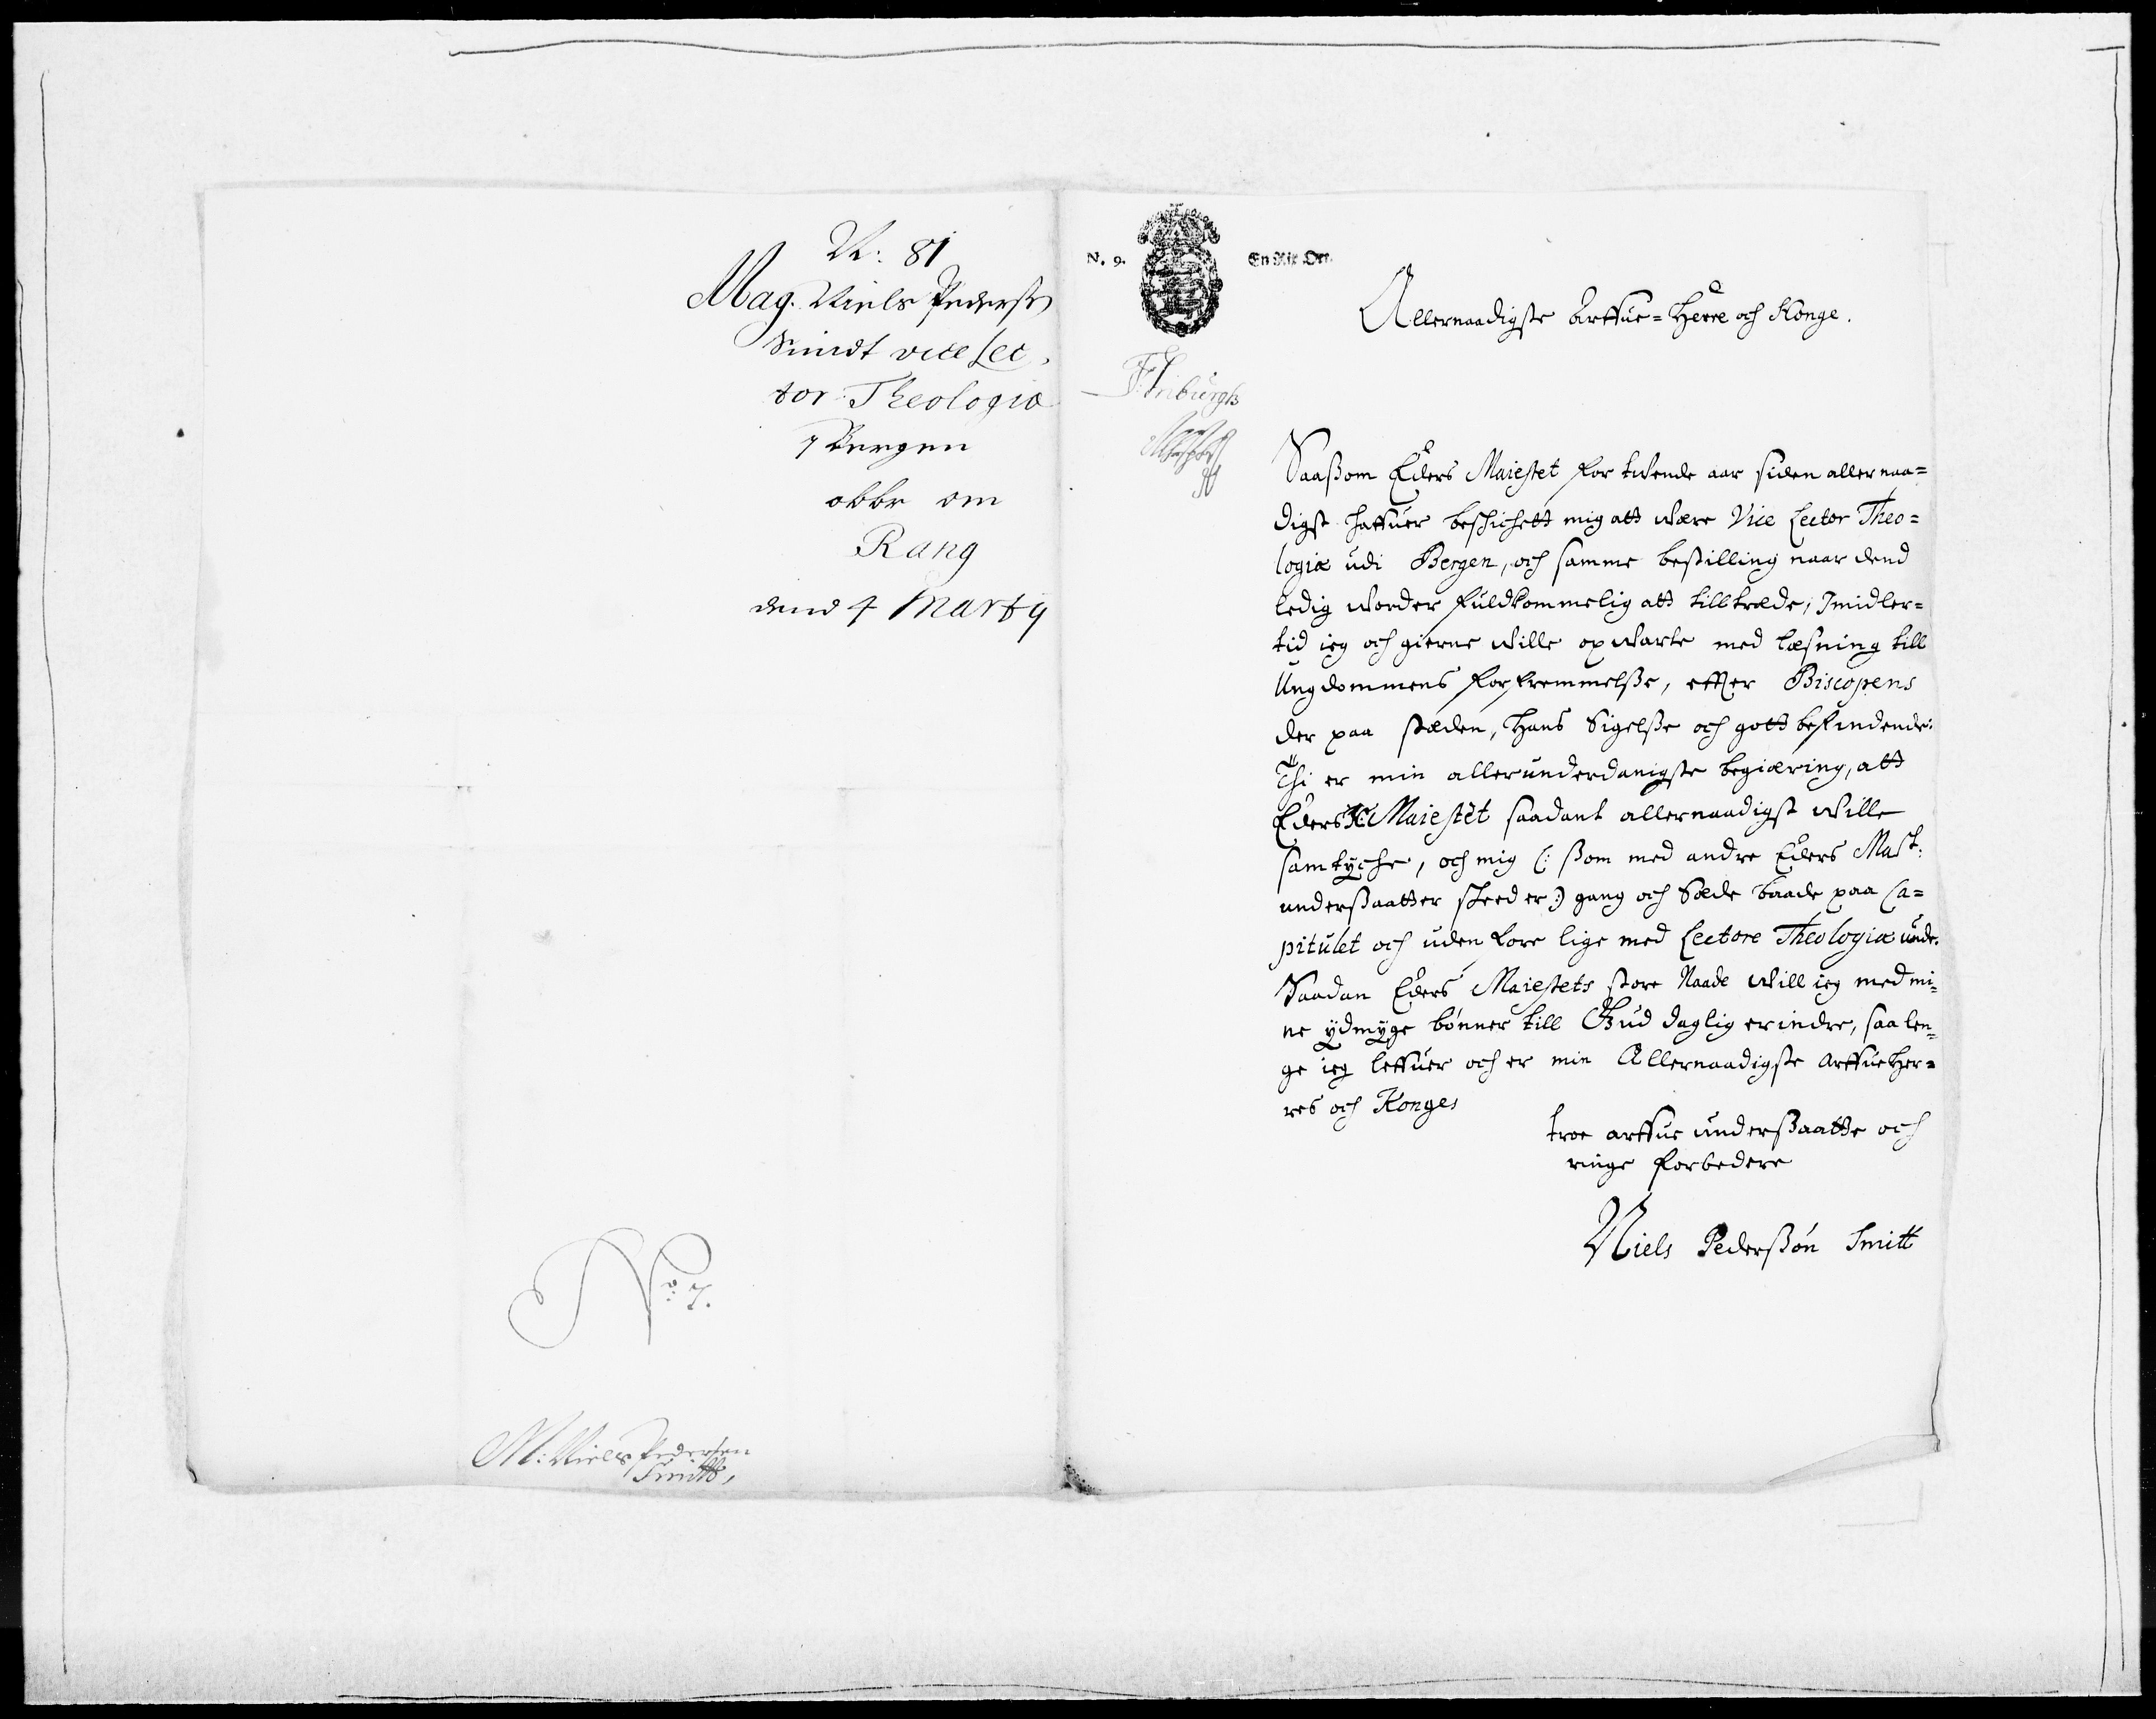 N: 81
Mag. Niels Peders
Smidt vice Lec,
tor Theologiæ
i Bergen
om
Rang
dend 4 Marty
No. 7.
M: Niels Pedersen
Smitt,
N. 9. En Rix Ort.
Allernaadigste Arffue-Herre och Konge.
Saaßom Eders Maiestet for tvende aar siden allernaa=
digst haffuer beschichett mig att være Vice Lector Theo=
logiæ udi Bergen, och samme bestilling naar dend
ledig vorder fuldkommelig att tilltræde, Imidler=
tid ieg och gierne ville opvarte med læsning till
Ungdommens forfremmelße, effter Biscopens
der paa stæden, Hans Sigelße och gott befindende:
Thi er min allerunderdanigste begiæring, att
Eders K. Maiestet saadant allernaadigst ville
samtyche, och mig (: ßom med andre Eders Mast:
underßaatter skeeder :) gang och Sæde baade paa Ca=
pitulet och uden fore lige med Lectore Theologiæ unde.
Saadan Eders Maiestets store Naade vill ieg med mi=
ne ydmyge bønner till Gud daglig erindre, saa len=
ge ieg leffuer och er min Allernaadigste Arffue Her=
res och Konges
troe arffue underßaatte och
ringe forbedere
Niels Pederßøn Smitt